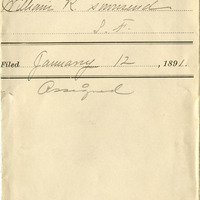 William R Townsend
S. F.
Filed January 12, 1891.
Assigned